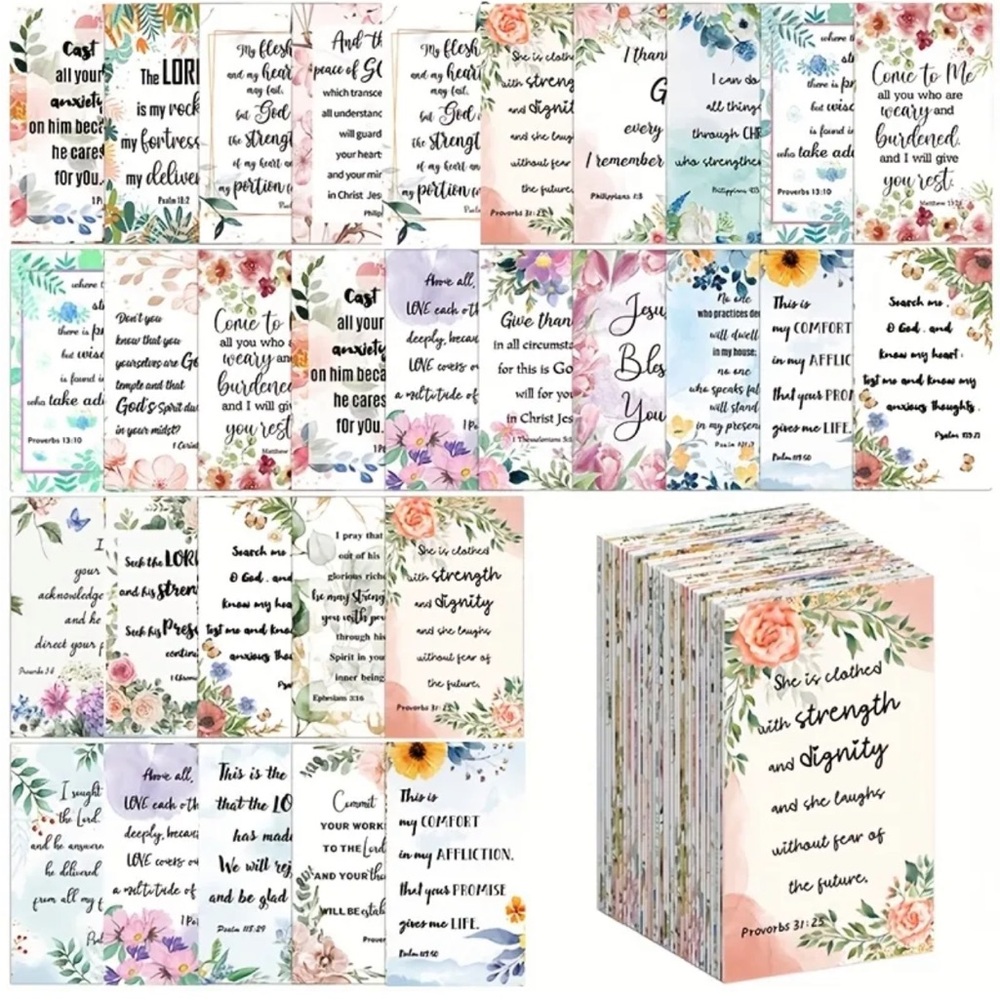 Cast
all your
anxiety
on him beca
he cares
for you.
1 P
The LORD
is my rock
my fortress
my deliver
Psalm 18:2
My flesh
and my heart
may fail,
but God
the strength
of my heart an
my portion
And th
peace of GO
which transce
all understand
will guard
your heart
and your min
in Christ Jes
Philip
My flesh
and my heart
may fail,
but God
the strength
of my heart an
my portion
She is clothed
with streng
and dignit
and she laugh
without fear
the future,
Proverbs 31:25
I than
G
every
I remember
Philippians 1:3
I can do
all things
through CHR
who strengthen
Philippians 4:13
where t
st
there is pr
but wisd
is found i
who take adv
Proverbs 13:10
Come to Me
all you who are
weary and
burdened,
and I will give
you rest.
Matthew 11:28
where t
st
there is pr
but wisd
is found i
who take adv
Proverbs 13:10
Don't you
know that you
yourselves are Go
temple and that
God's Spirit dw
in your midst?
1 Corint
Come to
all you who a
weary an
burdened
and I will gi
you rest
Matthew
Cast
all your
anxiety
on him beca
he cares
for you.
1 P
Above all,
LOVE each oth
deeply, becau
LOVE covers o
a multitude of
1 Pe
Give than
in all circumsta
for this is Go
will for yo
in Christ Jes
1 Thessalonians 5:1
Jesu
Bles
You
No one
who practices de
will dwell
in my house;
no one
who speaks fal
will stand
in my presen
This is
my COMFORT
in my AFFLIC
that your PROM
gives me LIFE.
Psalm 119:50
Search me,
O God, and
know my heart;
test me and know my
anxious thoughts.
Psalm 139:23
I
your
acknowledge
and he
direct your p
Proverbs 3:6
Seek the LORD
and his stren
Seek his Prese
contin
1 Chron
Search me
O God, and
know my hea
test me and know
anxious tho
Psa
I pray that
out of his
glorious riche
he may streng
you with po
through his
Spirit in you
inner being
Ephesians 3:16
She is clothed
with strength
and dignity
and she laughs
without fear of
the future,
Proverbs 31:25
I sought
the Lord
and he answere
he delivered
from all my f
Psal
Above all,
LOVE each oth
deeply, becau
LOVE covers o
a multitude of
1 Pe
This is the
that the LO
has mad
We will rej
and be glad
Psalm 118:29
Commit
YOUR WORK
TO THE Lord
AND YOUR tho
WILL BE estab
Prover
This is
my COMFORT
in my AFFLICTION,
that your PROMISE
gives me LIFE.
Psalm 119:50
She is clothed
with strength
and dignity
and she laughs
without fear of
the future,
Proverbs 31:25